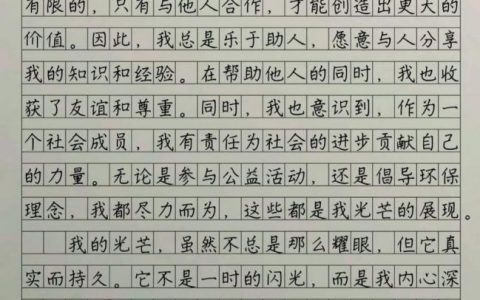 有限的，只有与他人合作，才能创造出更大的
价值。因此，我总是乐于助人，愿意与人分享
我的知识和经验。在帮助他人的同时，我也收
获了友谊和尊重。同时，我也意识到，作为一
个社会成员，我有责任为社会的进步贡献自己
的力量。无论是参与公益活动，还是倡导环保
理念，我都尽力而为，这些都是我光芒的展现。
我的光芒，虽然不总是那么耀眼，但它真
实而持久。它不是一时的闪光，而是我内心深